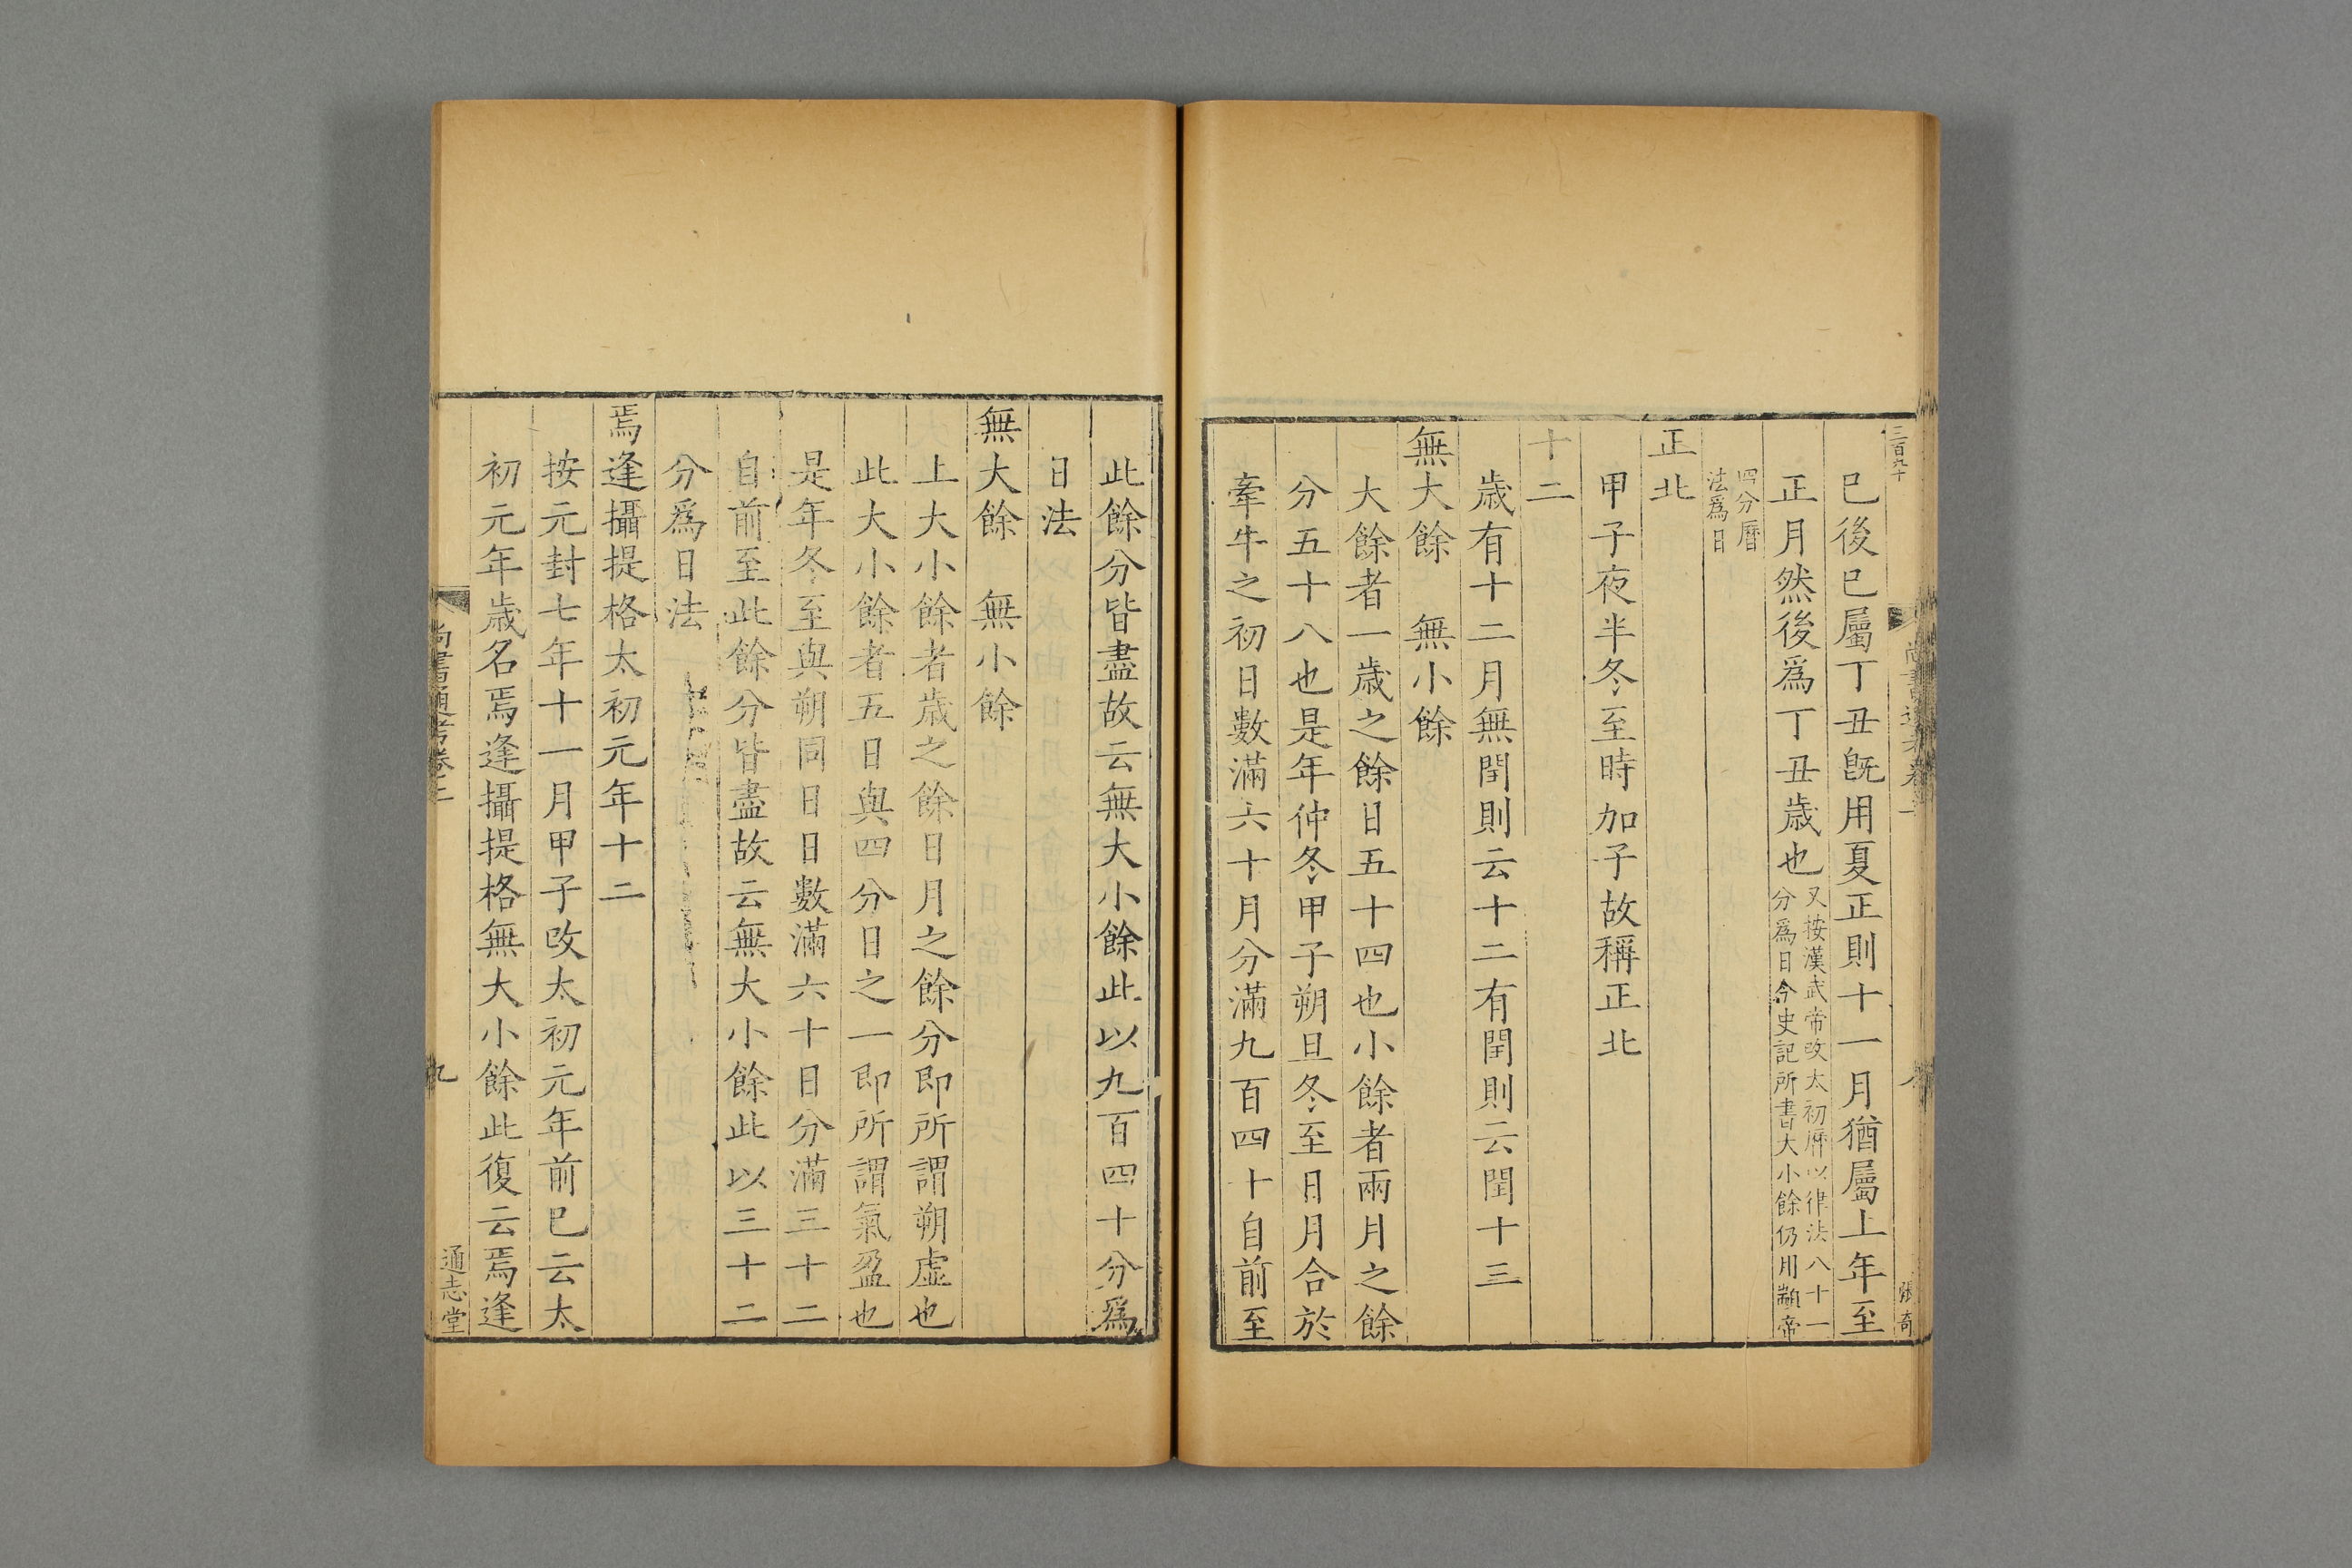 三百九十
尚書通考卷二
張奇
巳後巳屬丁丑旣用夏正則十一月猶屬上年至
正月然後爲丁丑歳也又按漢武帝改太初厤以律法八十一
分爲日今史記所書大小餘仍用顓帝
四分曆
法爲日
正北
甲子夜半冬至時加子故稱正北
十二
歳有十二月無閏則云十二有閏則云閏十三
無大餘　無小餘
大餘者一歳之餘日五十四也小餘者兩月之餘
分五十八也是年仲冬甲子朔旦冬至日月合於
牽牛之初日數滿六十月分滿九百四十自前至
此餘分皆盡故云無大小餘此以九百四十分爲
日法
無大餘　無小餘
上大小餘者歳之餘日月之餘分即所謂朔虛也
此大小餘者五日與四分日之一即所謂氣盈也
是年冬至與朔同日日數滿六十日分滿三十二
自前至此餘分皆盡故云無大小餘此以三十二
分爲日法
焉逢攝提格太初元年十二
按元封七年十一月甲子改太初元年前巳云太
初元年歳名焉逢攝提格無大小餘此復云焉逢
尚書通考卷二
九
通志堂